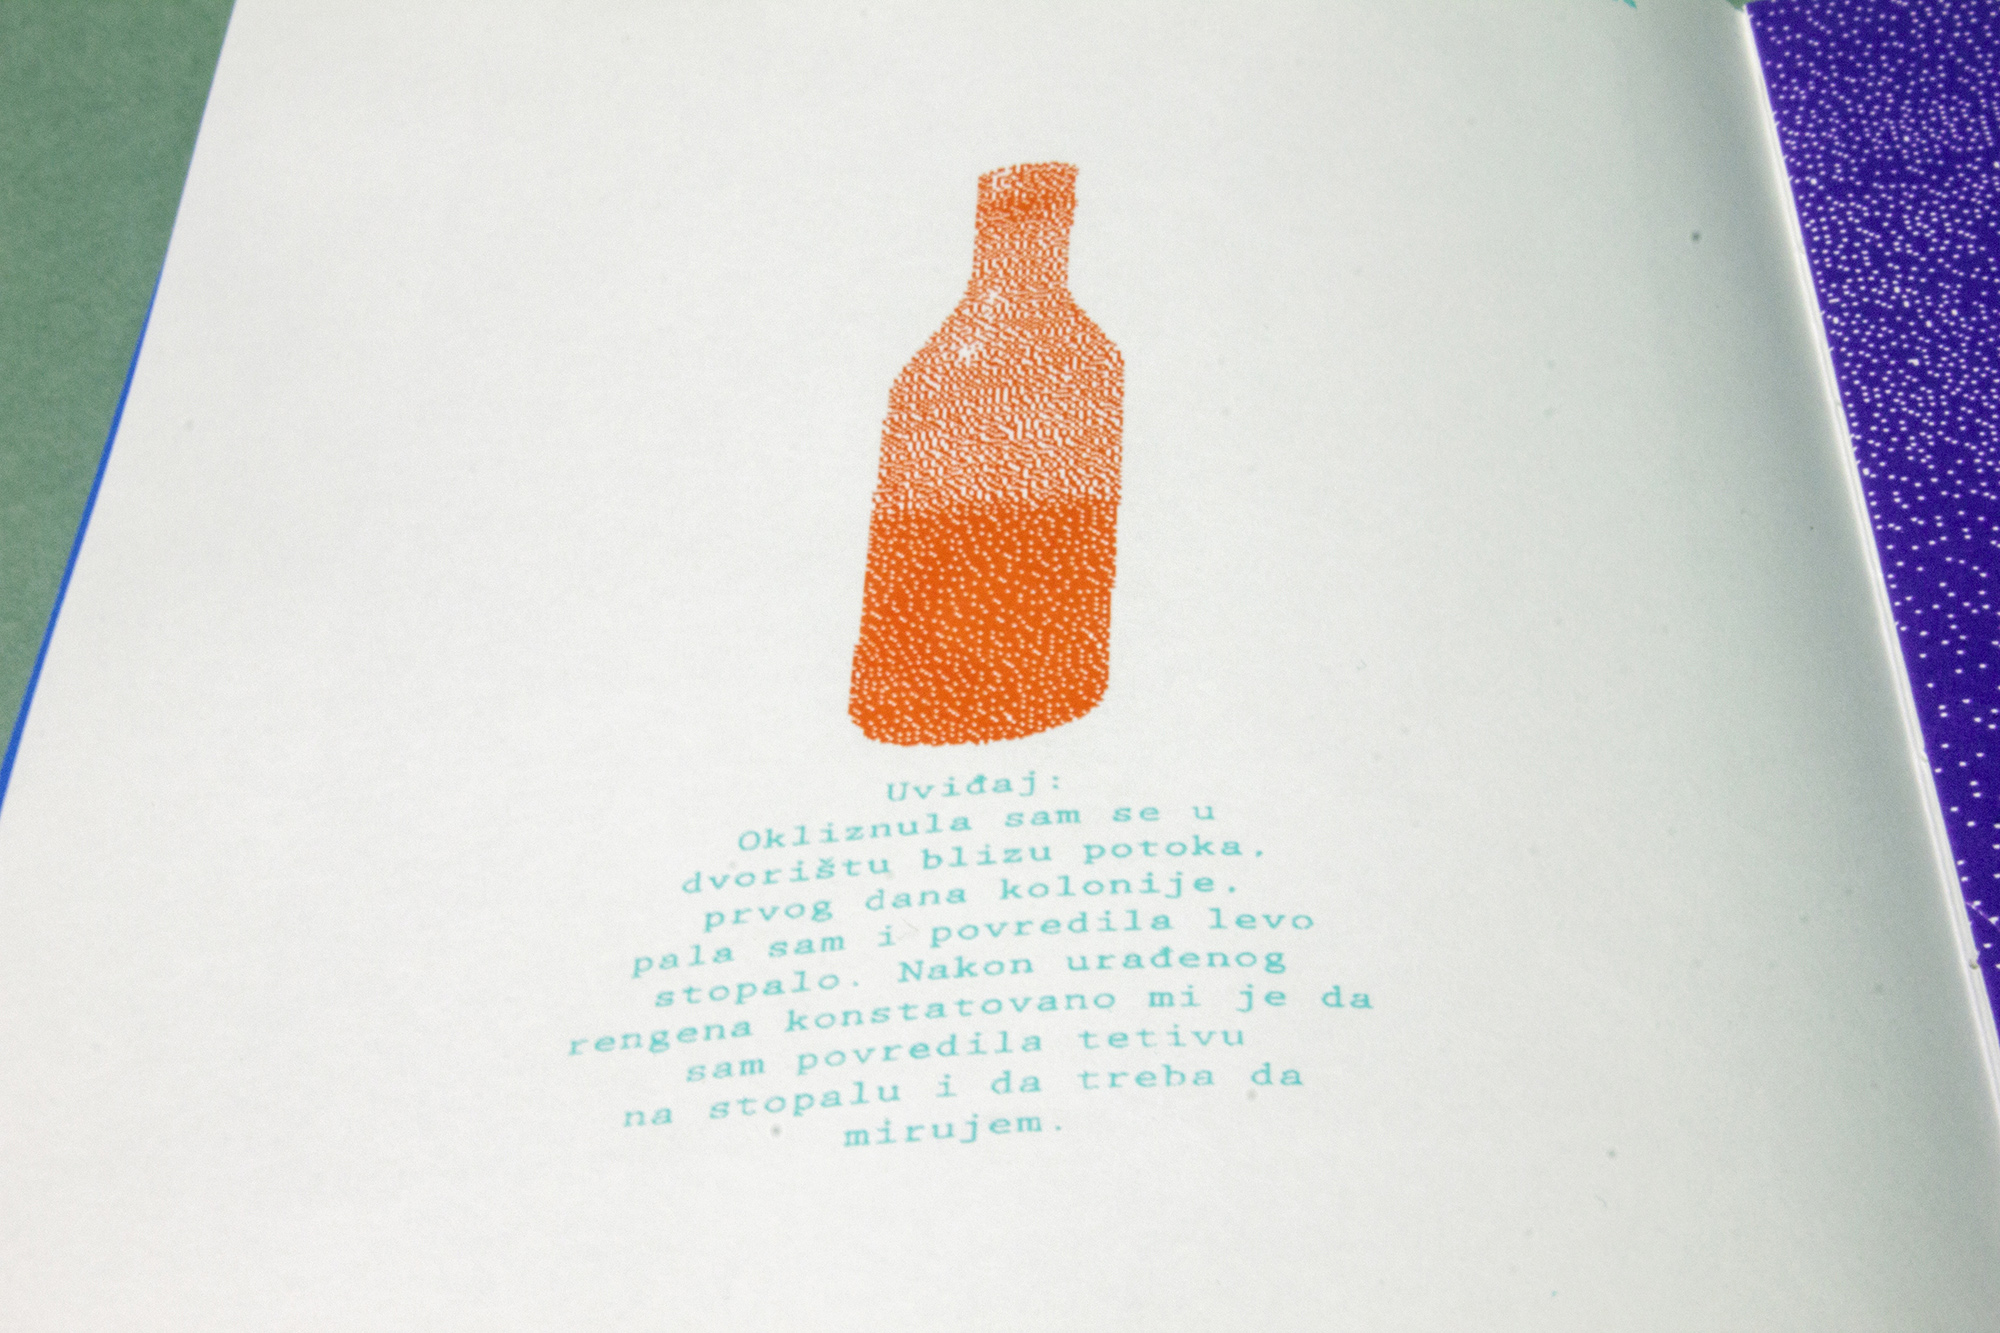 Uviđaj:
Okliznula sam se u
dvorištu blizu potoka,
prvog dana kolonije,
pala sam i povredila levo
stopalo. Nakon urađenog
rengena konstatovano mi je da
sam povredila tetivu
na stopalu i da treba da
mirujem.